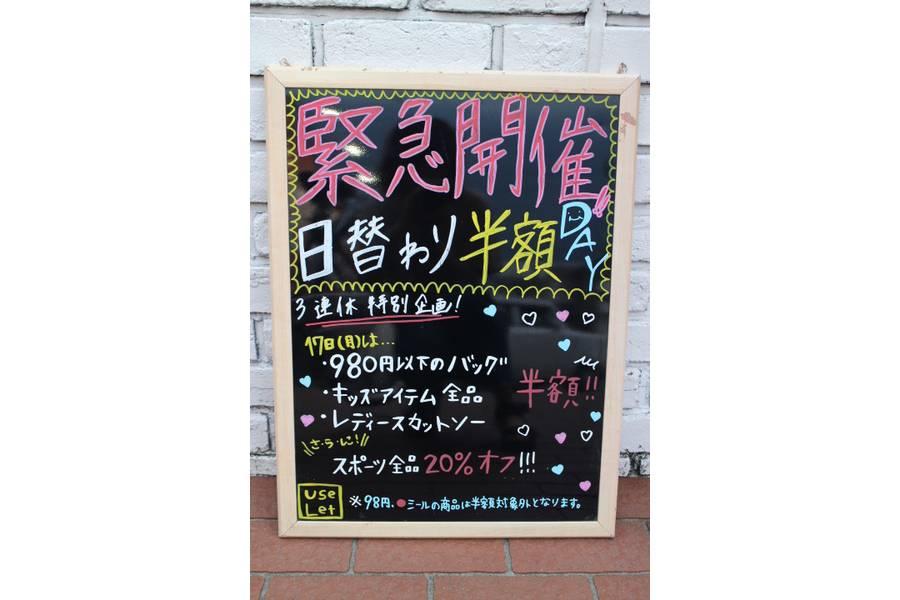 緊急開催!!
日替わり半額DAY
3連休特別企画!
17日(月)は...
・980円以下のバッグ
・キッズアイテム全品
・レディースカットソー
半額!!
さ・ら・に!
スポーツ全品20%オフ!!!
Use Let
※98円、●シールの商品は半額対象外となります。